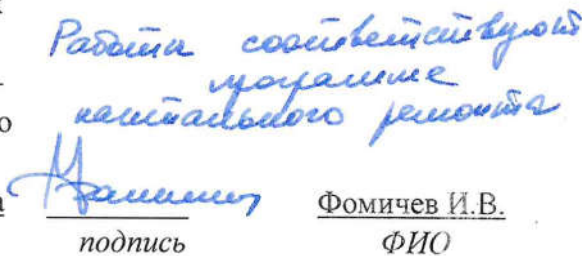 Работы соответствуют
программе
капитального ремонта
о
а
Фомичев И.В.
подпись ФИО